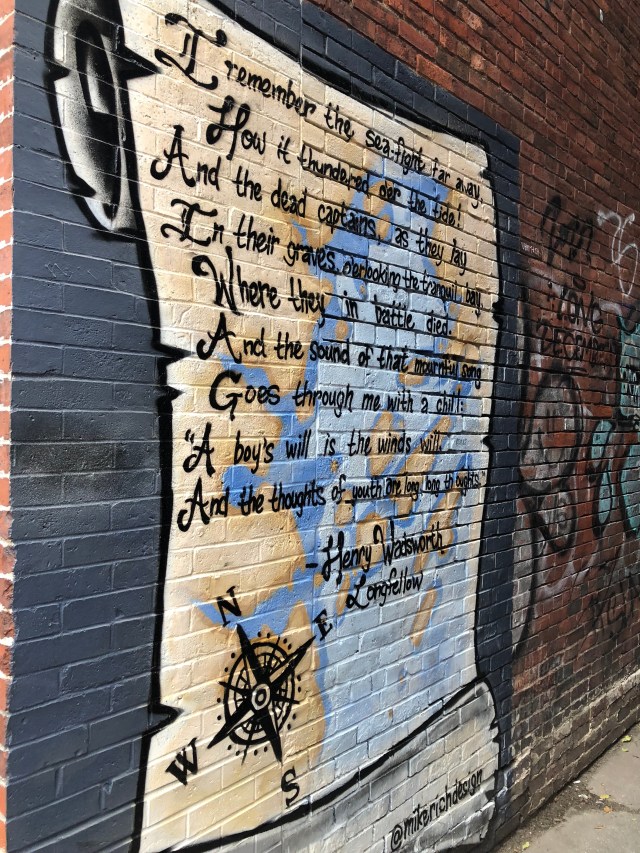 I remember the sea-fight far away,
How it thundered o'er the tide!
And the dead captains, as they lay
In their graves, o'erlooking the tranquil bay,
Where they in battle died.
And the sound of that mournful song
Goes through me with a chill:
"A boy's will is the winds will
And the thoughts of youth are long long thoughts."
-Henry Wadsworth
Longfellow
N
E
W
S
@mike.richdesign